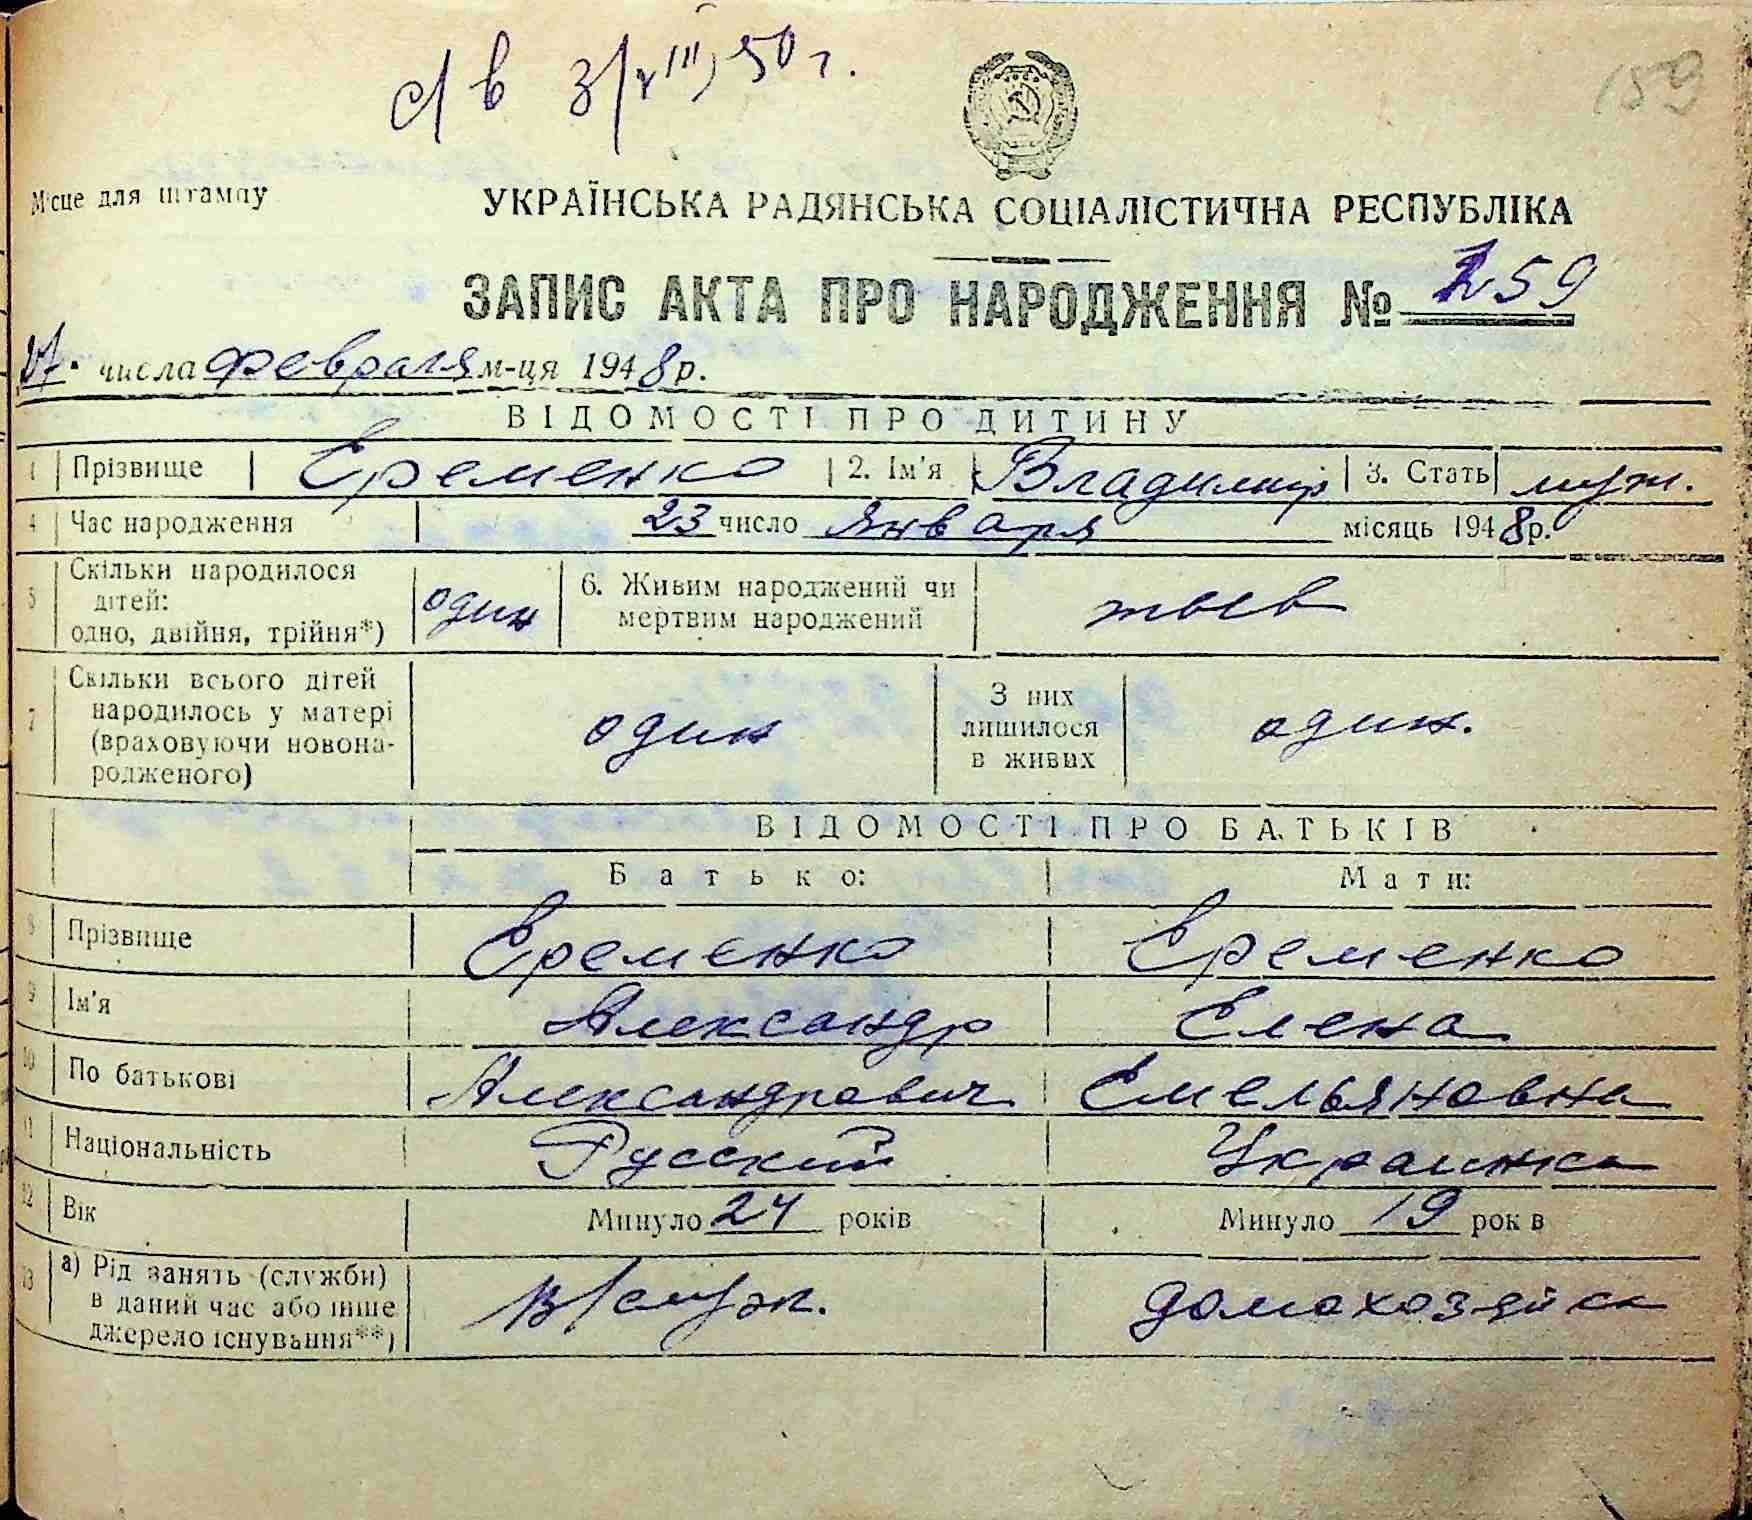 с/в 3/VIII, 50 г.
159
Місце для штампу
УКРАЇНСЬКА РАДЯНСЬКА СОЦІАЛІСТИЧНА РЕСПУБЛІКА
ЗАПИС АКТА ПРО НАРОДЖЕННЯ № 259
27. числа февраля м-ця 1948 р.
ВІДОМОСТІ ПРО ДИТИНУ
1 Прізвище Еременко 2. Ім'я Владимир 3. Стать муж.
4 Час народження 23 число января місяць 1948 р.
5 Скільки народилося дітей: одно, двійня, трійня*) один 6. Живим народжений чи мертвим народжений жив
7 Скільки всього дітей народилось у матері (враховуючи новонародженого) один З них лишилося в живих один.
ВІДОМОСТІ ПРО БАТЬКІВ
Батько: Мати:
8 Прізвище Еременко Еременко
9 Ім'я Александр Елена
10 По батькові Александрович Емельяновна
11 Національність Русский Украинка
12 Вік Минуло 24 років Минуло 19 рок в
13 а) Рід занять (служби) в даний час або інше джерело існування**) в/служ. домохозяйка